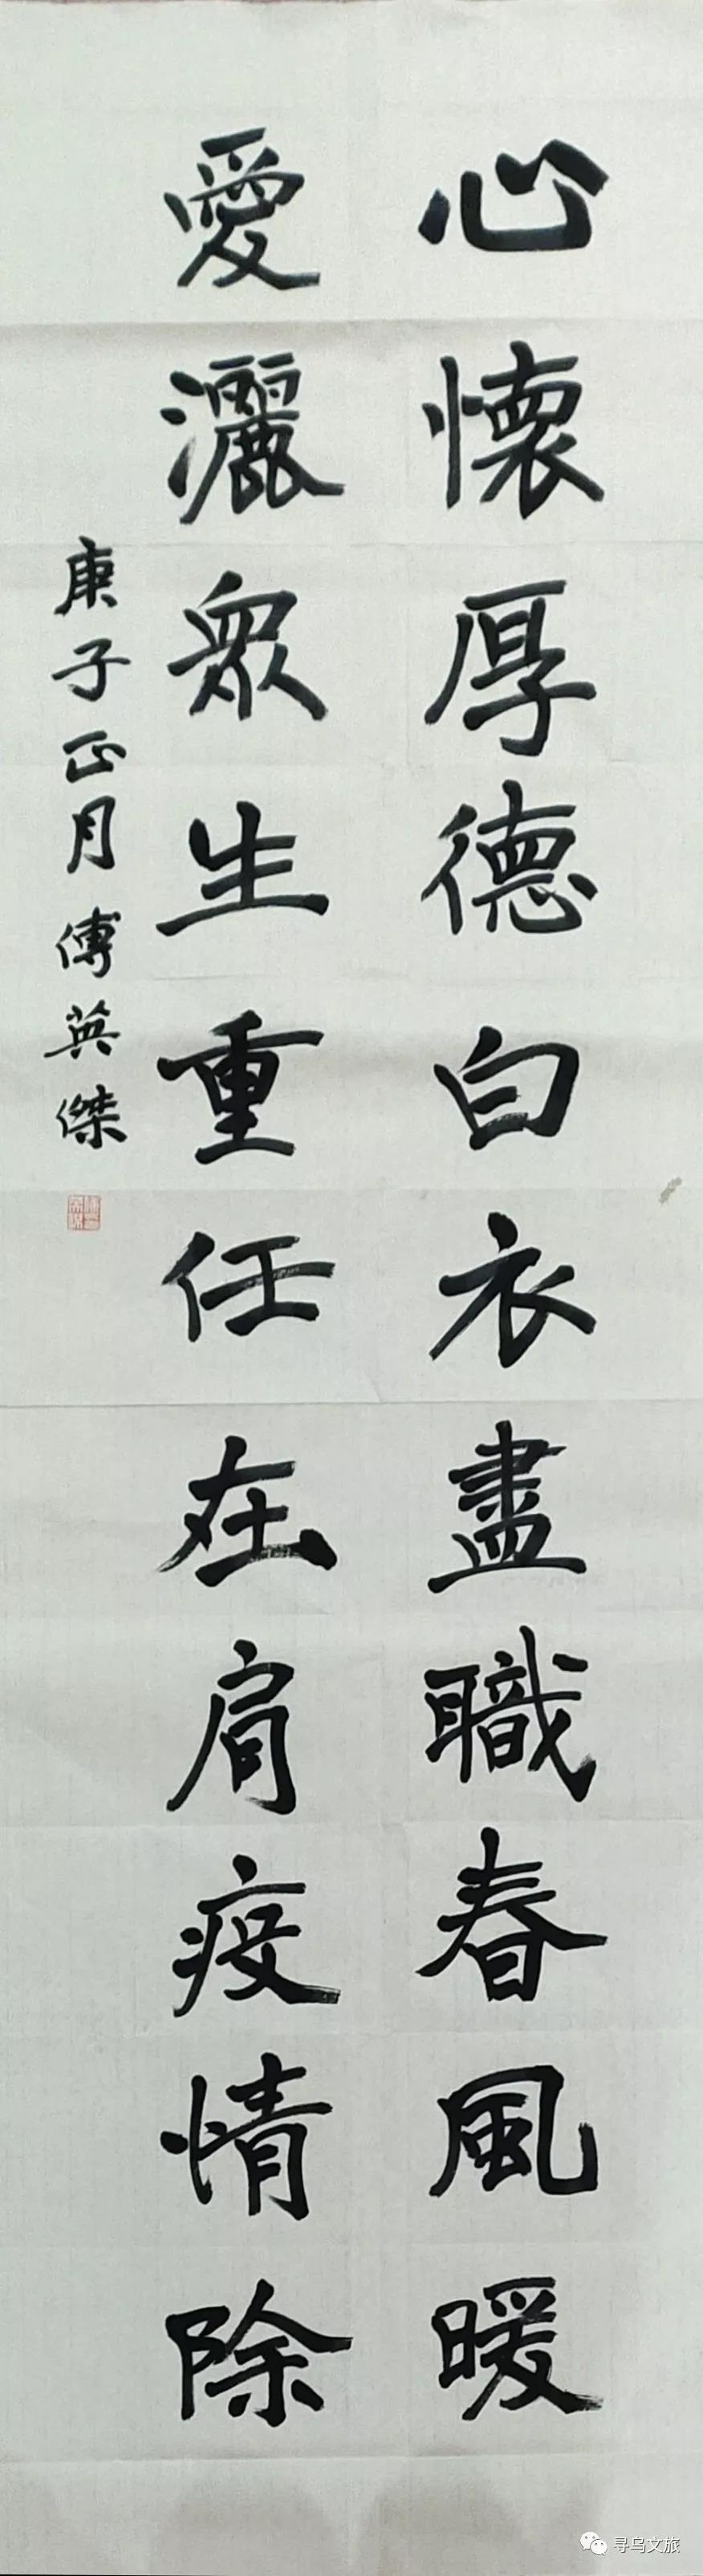 心懷厚德白衣盡職春風暖
愛灑眾生重任在肩疫情除
庚子正月傅英傑
寻乌文旅